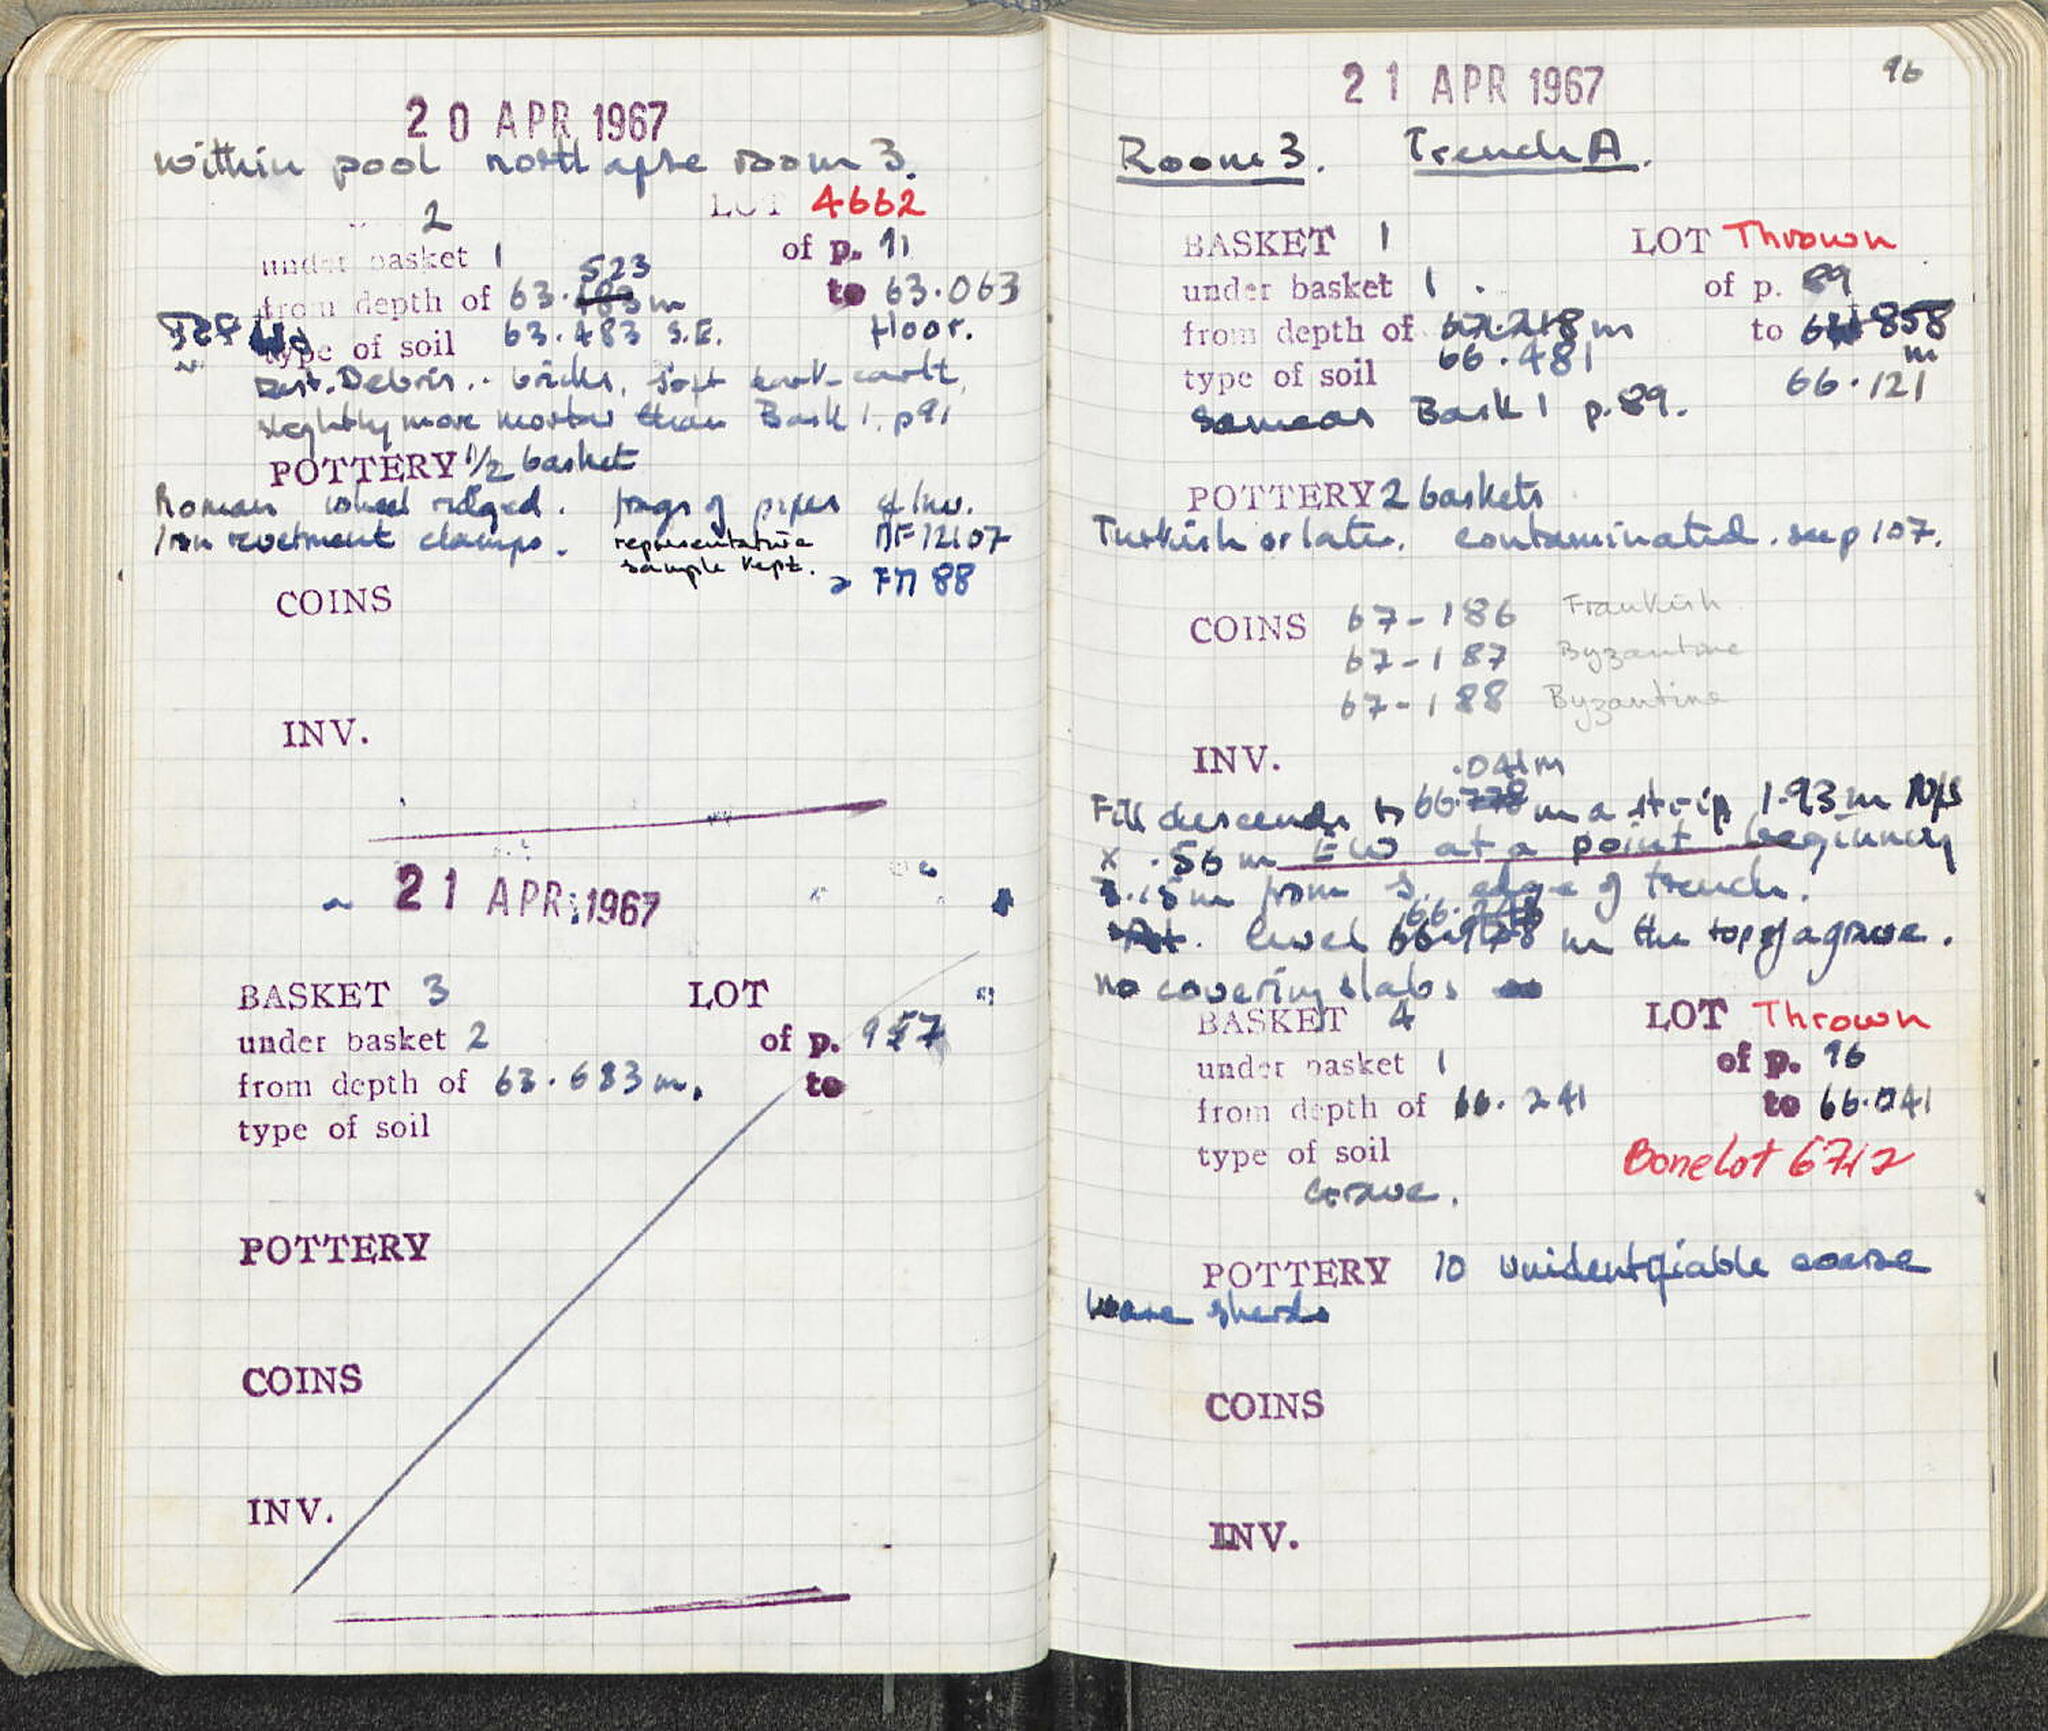 20 APR 1967
within pool north apse room 3.
2 LOT 4662
under basket 1 of p. 91
523
from depth of 63.483 m to 63.063
type of soil 63.483 S.E. floor.
Dest. Debris. bricks, soft dark earth,
slightly more mortar than Bask 1. p91
POTTERY 1/2 basket
Roman wheel ridged. frags of pipes cf Inv.
Iron revetment clamps. representative
sample kept.
COINS
INV.
21 APR 1967
BASKET 3 LOT
under basket 2 of p.
from depth of 63.683 m. to
type of soil
POTTERY
COINS
INV.
96
21 APR 1967
Room 3. Trench A.
BASKET 1 LOT Thrown
under basket 1. of p. 89
from depth of 67.218 m to 858
66.481 m
type of soil 66.121
Same as Bask 1 p.89.
POTTERY 2 baskets
Turkish or later. contaminated. see p 107.
COINS 67-186 Frankish
67-187 Byzantine
67-188 Byzantine
INV. .041m
Fill descends to 66.778 in a strip 1.93 m N/S
x .56 m EW at a point beginning
.15m from S. edge of trench.
level in the top of a grave.
no covering slabs
BASKET 4 LOT Thrown
under basket 1 of p. 96
from depth of 66.241 to 66.041
type of soil Bone lot 67-12
Grave.
POTTERY 10 unidentifiable coarse
ware sherds
COINS
INV.